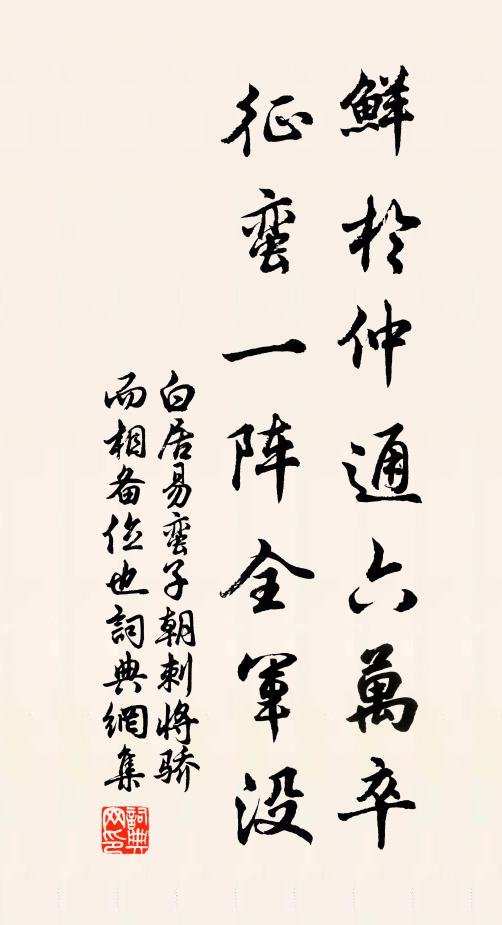 鮮於仲通六萬卒
征蛮一阵全軍没
白居易蛮子朝刺將骄
而相备位也詞典網集
詞典网印